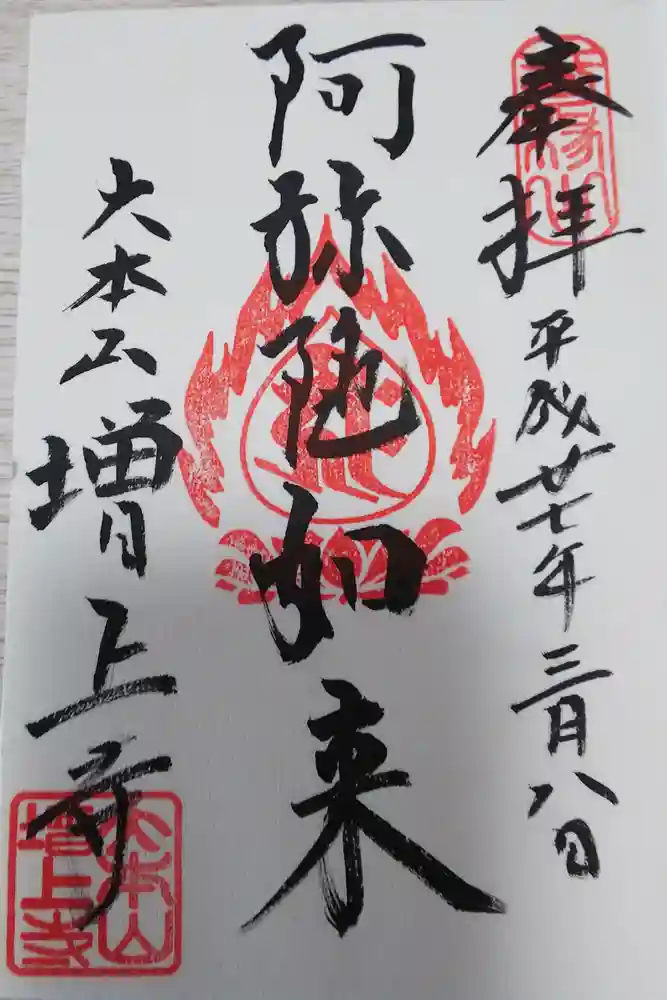 奉拝
平成廿七年三月八日
阿弥陀如来
大本山
増上寺
大本山
増上寺